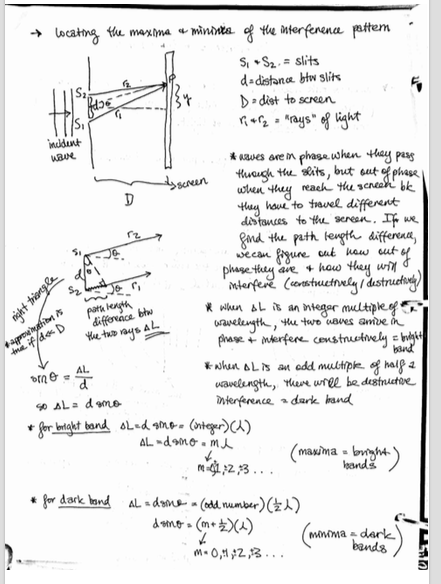 → locating the maxima & minima of the interference pattern
S₁ & S₂ = slits
d = distance btw slits
D = dist to screen
r₁ & r₂ = "rays" of light
S₂
S₁
d
θ
r₂
r₁
P
y
incident
wave
D
screen
* waves are in phase when they pass
through the slits, but out of phase
when they reach the screen bc
they have to travel different
distances to the screen. If we
find the path length difference,
we can figure out how out of
phase they are & how they will
interfere (constructively/destructively)
S₁
S₂
d
θ
r₂
θ
r₁
path length
difference btw
the two rays ΔL
right triangle
*approximation is
true if d << D
* when ΔL is an integer multiple of
wavelength, the two waves arrive in
phase & interfere constructively = bright
band
* when ΔL is an odd multiple of half a
wavelength, there will be destructive
interference = dark band
sinθ = ΔL/d
so ΔL = d sinθ
* for bright band ΔL = d sinθ = (integer)(λ)
ΔL = d sinθ = mλ
m = 0, ±1, ±2, ±3 . . .
(maxima = bright bands)
* for dark band ΔL = d sinθ = (odd number)(½λ)
d sinθ = (m+½)(λ)
m = 0, ±1, ±2, ±3 . . .
(minima = dark bands)